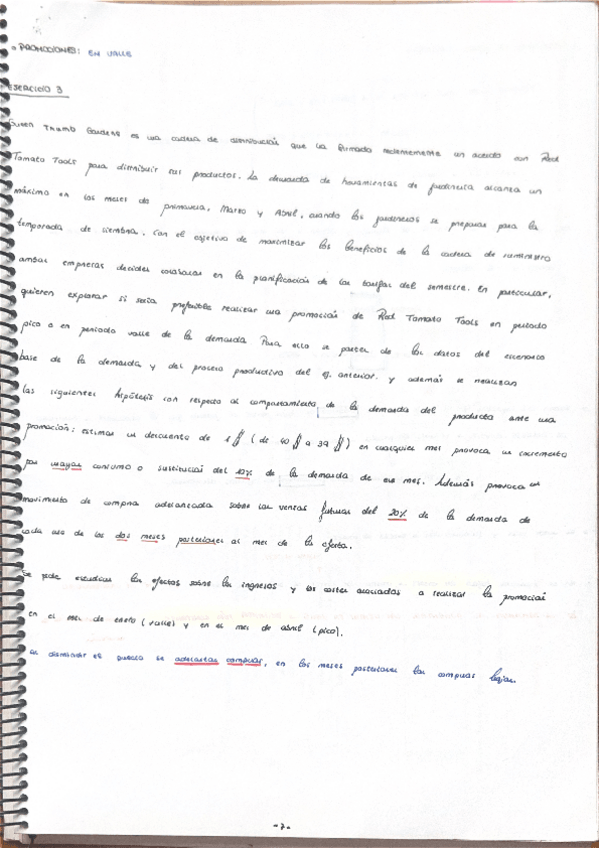 ▫ PROMOCIONES: EN VALLE
EJERCICIO 3
Green Thumb Gardens es una cadena de distribución que ha firmado recientemente un acuerdo con Red
Tomato Tools para distribuir sus productos. La demanda de herramientas de jardinería alcanza un
máximo en los meses de primavera, Marzo y Abril, cuando los jardineros se preparan para la
temporada de siembra. Con el objetivo de maximizar los beneficios de la cadena de suministro
ambas empresas deciden colaborar en la planificación de las del semestre. En particular,
quieren explorar si sería preferible realizar una promoción de Red Tomato Tools en periodo
pico o en periodo valle de la demanda. Para ello se parten de los datos del escenario
base de la demanda, y del proceso productivo del ej. anterior. y además se realizan
las siguientes hipótesis con respecto al comportamiento de la demanda del producto ante una
promoción: estiman un descuento de 1 $ (de 40 $ a 39 $) en cualquier mes provoca un incremento
por mayor consumo o sustitución del 10% de la demanda de ese mes. Además provoca un
movimiento de compra adelantada sobre las ventas futuras del 20% de la demanda de
cada uno de los dos meses posteriores al mes de la oferta.
Se pide estudiar los efectos sobre los ingresos y los costes asociados a realizar la promoción
en el mes de enero (valle) y en el mes de abril (pico).
al disminuir el precio se adelantan compras, en los meses posteriores las compras bajan.
-7-